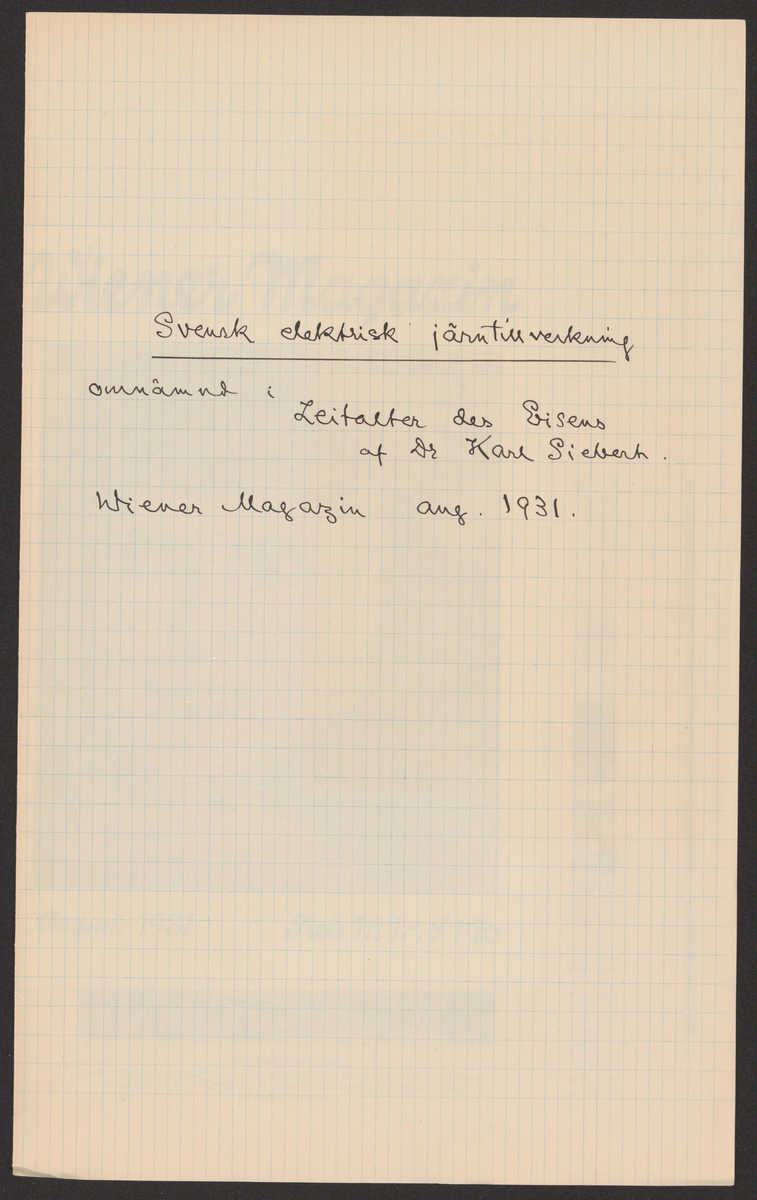 Svensk elektrisk järntillverkning
omnämnd i
Zeitalter des Eisens
af Dr Karl Siebert.
Wiener Magazin aug. 1931.
Wiener Magazin
August 1931